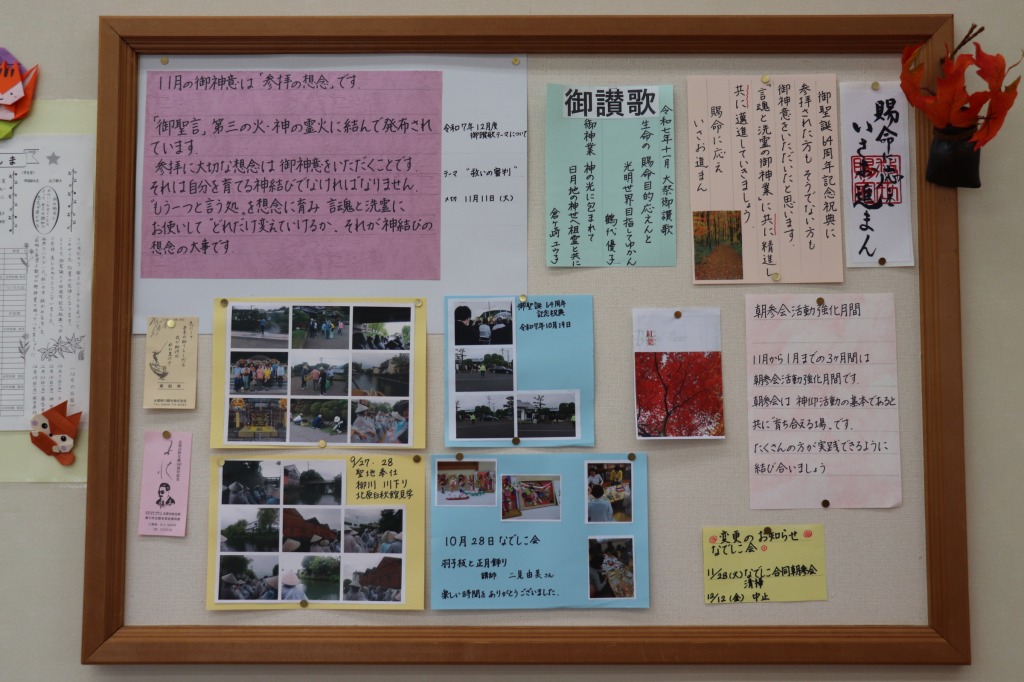 11月の御神意は"参拝の想念"です
「御聖言」第三の火・神の霊火に結んで発布され
ています.
参拝に大切な想念は御神意をいただくことです.
それは自分を育てる神結びでなければなりません.
"もう一つと言う処"を想念に育み 言魂と洗霊に
お使いして"どれだけ変えていけるか、それが神結びの
想念の大事です.
令和7年12月度
御讃歌テーマについて
テーマ "救いの審判"
〆切 11月11日(火)
御讃歌
令和七年十一月 大祭御讃歌
生命の賜命目的応えんと
光明世界目指してゆかん
鶴代 優子
御神業 神の光に包まれて
日月地の神せへ祖霊と共に
倉ヶ崎 ユウ子
御聖誕64周年記念祝典に
参拝された方も そうでない方も
御神意をいただいたと思います.
"言魂と洗霊の御神業"に共に精進し
共に邁進していきましょう
賜命に応え
いさお進まん
賜命
まん
9/27・28
聖地奉仕
柳川 川下り
北原白秋館見学
御聖誕64周年
記念祝典
令和7年10月19日
紅葉
朝参会活動強化月間
11月から1月までの3ヶ月間は
朝参会活動強化月間です
朝参会は 神仰活動の基本であると
共に"育ち合える場"です.
たくさんの方が実践できるように
結び合いましょう
10月28日なでしこ会
羽子板と正月飾り
講師 二見由美さん
楽しい時間をありがとうございました.
変更のお知らせ
なでしこ会
11/28(火)なでしこ合同朝参会
清掃
12/12(金) 中止